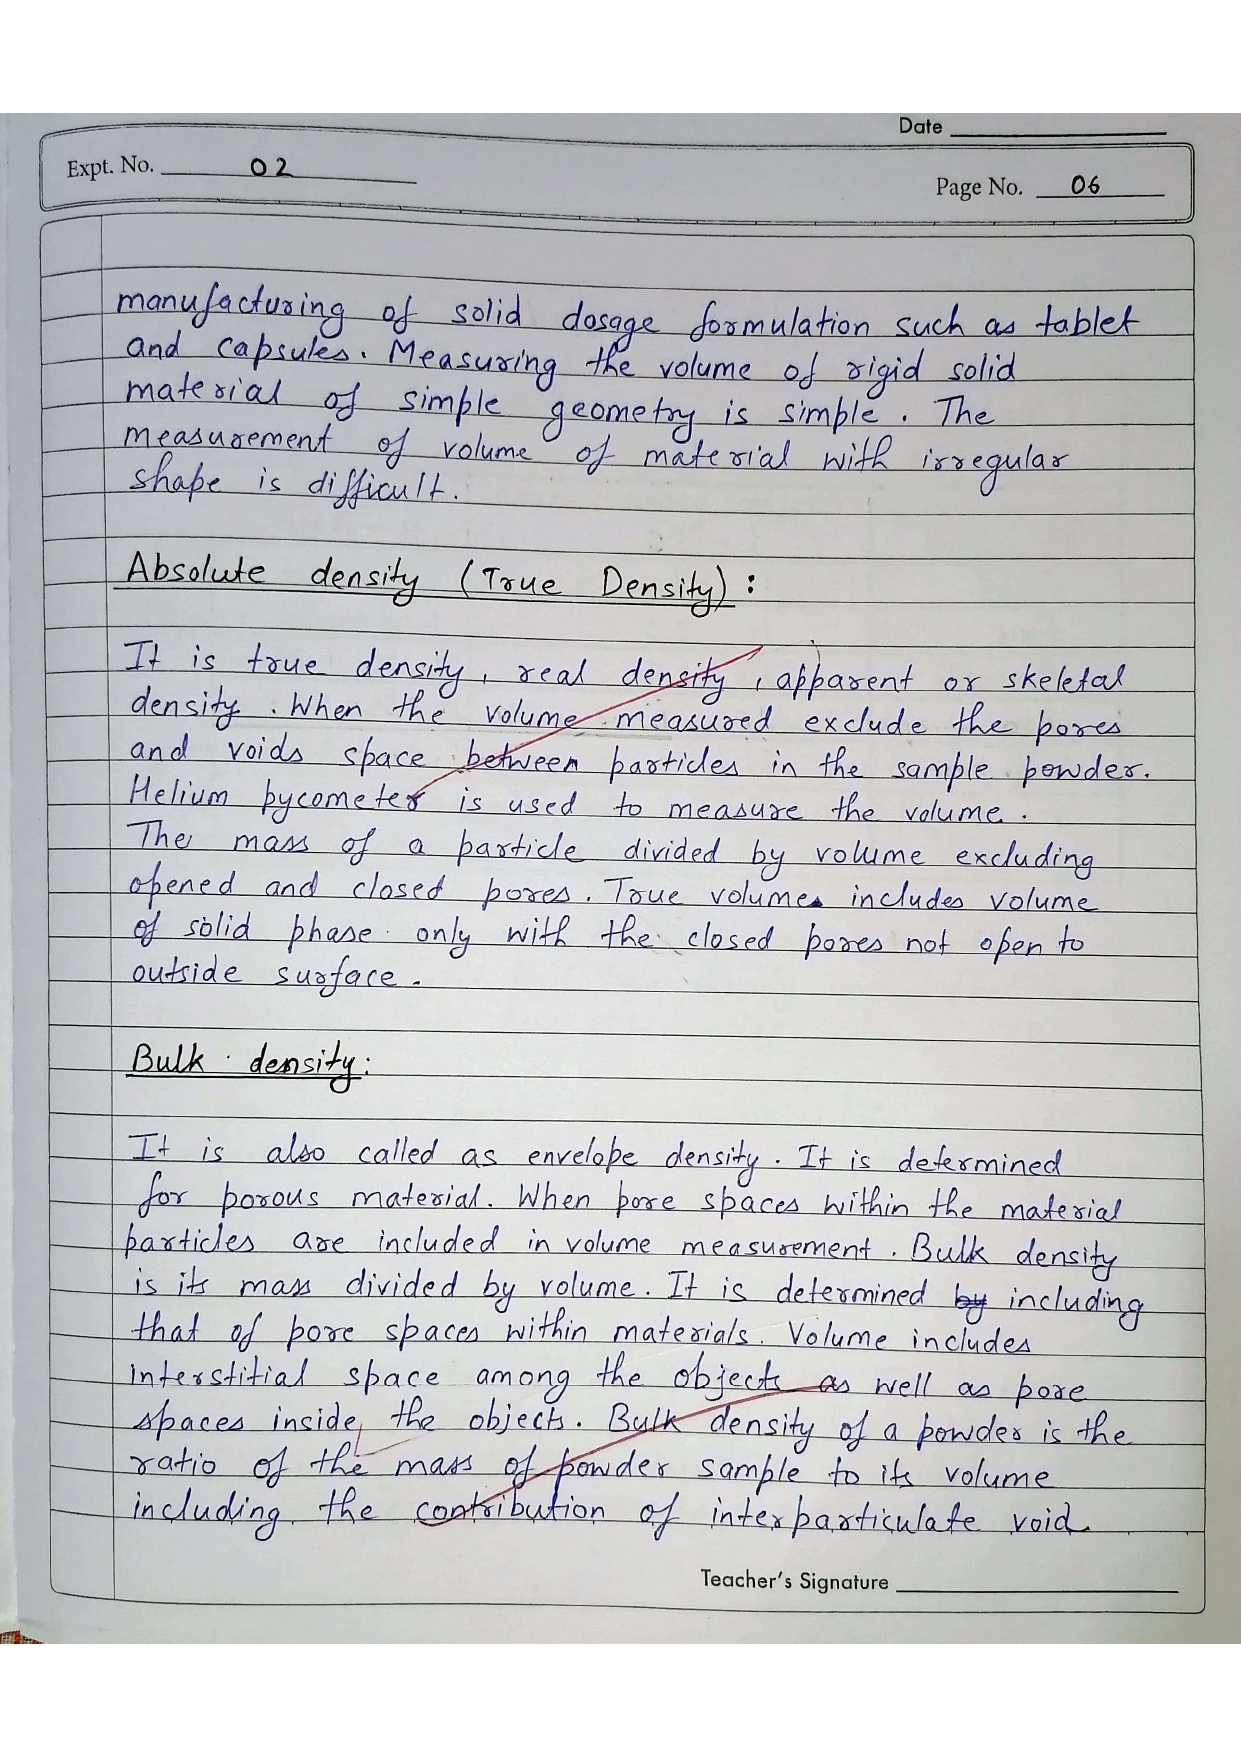 Date
Expt. No. 02
Page No. 06
manufacturing of solid dosage formulation such as tablet
and capsules. Measuring the volume of rigid solid
material of simple geometry is simple. The
measurement of volume of material with irregular
shape is difficult.
Absolute density (True Density) :
It is true density, real density, apparent or skeletal
density. When the volume measured exclude the pores
and voids space between particles in the sample powder.
Helium pycometer is used to measure the volume.
The mass of a particle divided by volume excluding
opened and closed pores. True volumes includes volume
of solid phase only with the closed pores not open to
outside surface.
Bulk density:
It is also called as envelope density. It is determined
for porous material. When pore spaces within the material
particles are included in volume measurement. Bulk density
is its mass divided by volume. It is determined by including
that of pore spaces within materials. Volume includes
interstitial space among the objects as well as pore
spaces inside, the objects. Bulk density of a powder is the
ratio of the mass of powder sample to its volume
including the contribution of interparticulate void.
Teacher's Signature